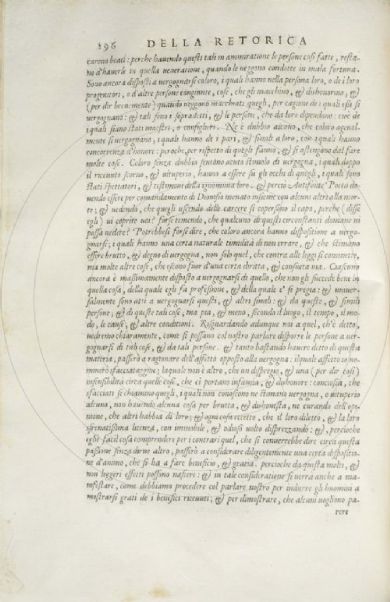 296 DELLA RETORICA
carono beati: perche havendo questi tali in ammiratione le persone così fatte, resta-
no d'haverle in quella veneratione, quando le veggono condotte in mala fortuna.
Sono ancora disposti a vergognarsi coloro, i quali hanno nella persona loro, o de i loro
progenitori, o d'altre persone congiunte, cose, che gli macchino, & dishonorino, &
(per dir brevemente) quando veggono macchiati quegli, per cagione de i quali essi si
vergognano: & tali sono i sopradetti, & le persone, che da loro dipendono: cioè de
i quali siano stati maestri, o consiglieri. Ne è dubbio alcuno, che coloro agevol-
mente si vergognano, i quali hanno de i pari, & simili a loro, con i quali hanno
concorrenza d'honore: perochè per rispetto di quegli fanno, & si astengono dal fare
molte cose. Coloro senza dubbio sentono acuto stimolo di vergogna, i quali doppo
il ricevuto scorno, & vituperio, hanno a essere su gli occhi di quegli, i quali sono
stati spettatori, & testimoni della ignominia loro. & perciò Antifonte Poeta do-
vendo essere per comandamento di Dionisio tormentato insieme con alcuni altri alla mor-
te; & vedendo, che quegli uscendo delle carcere si coprivano il capo, perche (disse
egli) vi coprite voi? forse temendo, che qualcuno di questi circonstanti domane vi
possa vedere? Potrebbesi forse dire, che coloro ancora hanno dispositione a vergo-
gnarsi; i quali hanno una certa naturale temenza di non errare, & che stimano
essere brutto, & degno di vergogna, non solo quel, che contra alle leggi si commette,
ma molte altre cose, che sieno fuor d'una certa dritta, & consueta via. Ciascuno
ancora è massimamente disposto a vergognarsi di quello, che non gli succede bene in
quella cosa, della quale egli fa professione, & della quale e' si pregia: & univer-
salmente sono atti a vergognarsi questi, & altri simili: & da queste, & simili
persone; & di queste tali cose, ma più, & meno, secondo il luogo, il tempo, il mo-
do, le cause, & altre conditioni. Risguardando adunque noi a quel, ch'è detto,
vedremo chiaramente, come si possano col nostro parlare disporre le persone a ver-
gognarsi di tali cose, & da tai persone. & tanto bastando havere detto di questa
materia, passerò a ragionare dell'affetto opposto alla vergogna: il quale affetto io no-
minerò sfacciataggine; laquale non è altro, che un disprezzo, & una (per dir così)
insensibilità circa quelle cose, che ci portano infamia, & dishonore: conciosia, che
sfacciati si chiamano quegli, i quali non conoscono ne stimano vergogna, o vituperio
alcuno, non havendo alcuna cosa per brutta, & dishonesta, ne curando dell'opi-
nione, che altri habbia di loro; & ogni cosa eccetto, che il loro diletto, & la loro
sfrenatissima licenza, con immobile, & odioso volto disprezzando: & percioche
egli è facil cosa comprendere per i contrari quel, che si converrebbe dire circa questa
passione senza dirne altro, passerò a considerare diligentemente una certa dispositio-
ne d'animo, che si ha a fare beneficio, & gratia. percioche da questa molti, &
non leggeri effetti possono nascere: & in tale consideratione si verrà anche a ma-
nifestare, come debbiamo procedere col parlare nostro per indurre gli huomini a
mostrarsi grati de i benefici ricevuti; & per dimostrare, che alcuni vogliono pa-
rere